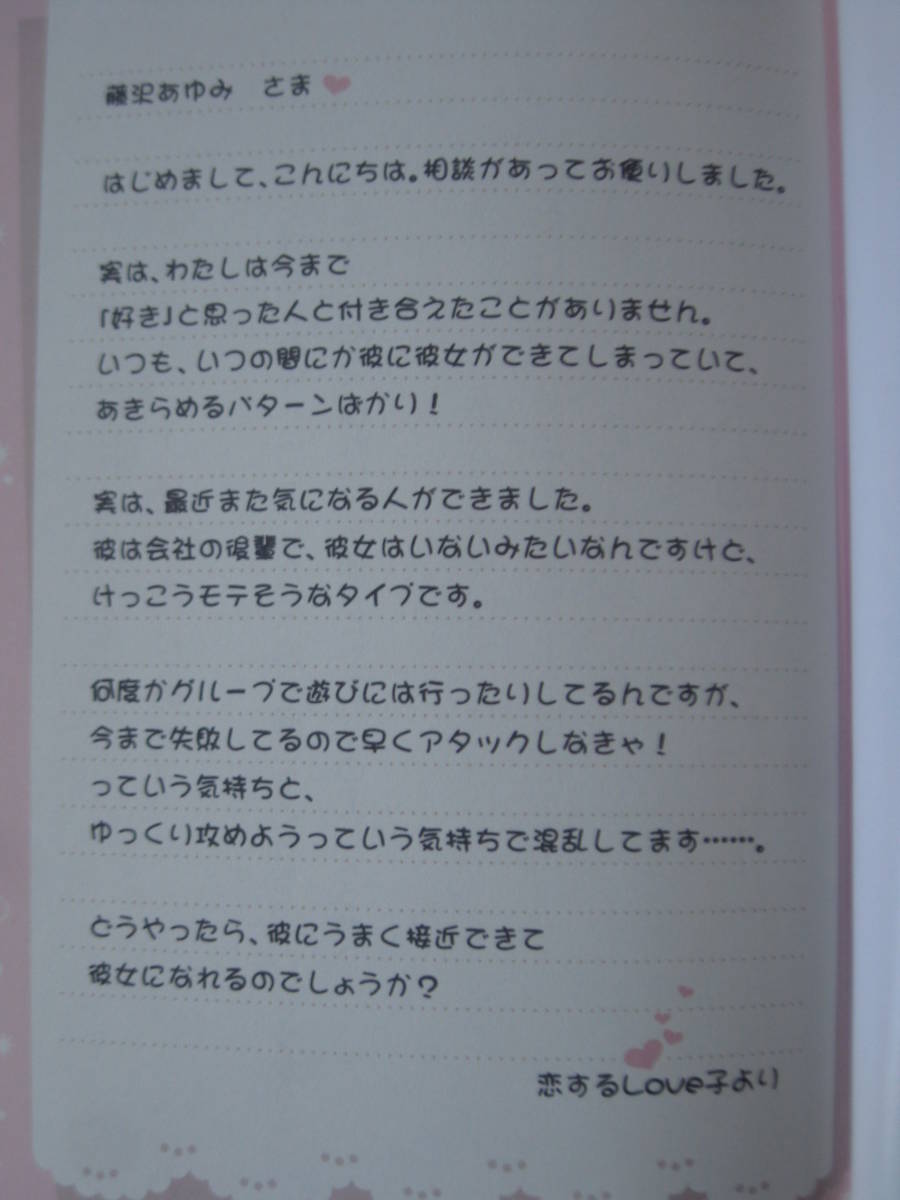 藤沢あゆみ　さま
はじめまして、こんにちは。相談があってお便りしました。
実は、わたしは今まで
「好き」と思った人と付き合えたことがありません。
いつも、いつの間にか彼に彼女ができてしまっていて、
あきらめるパターンばかり！
実は、最近また気になる人ができました。
彼は会社の後輩で、彼女はいないみたいなんですけど、
けっこうモテそうなタイプです。
何度かグループで遊びには行ったりしてるんですが、
今まで失敗してるので早くアタックしなきゃ！
っていう気持ちと、
ゆっくり攻めようっていう気持ちで混乱してます……。
どうやったら、彼にうまく接近できて
彼女になれるのでしょうか？
恋するLove子より